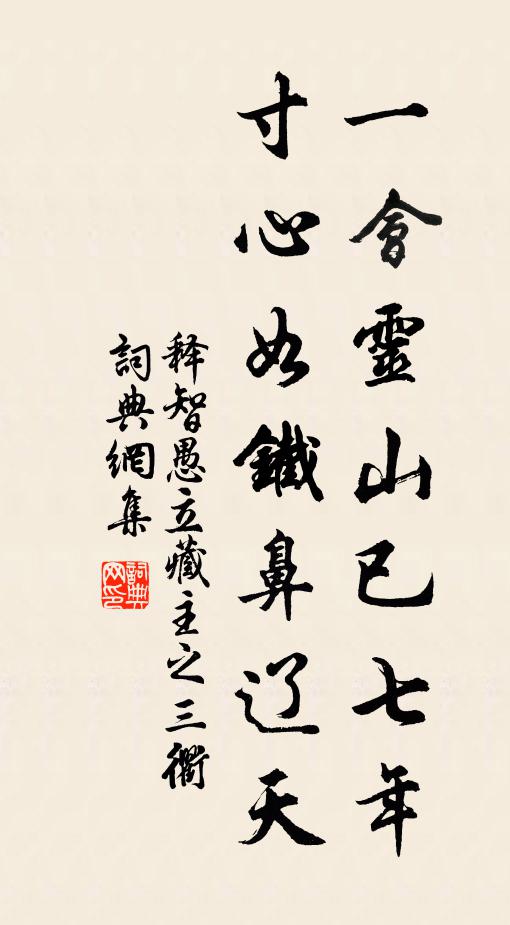 一會靈山已七年
寸心如鐵鼻辽天
释智愚立藏主之三衢
詞典網集
詞典网印